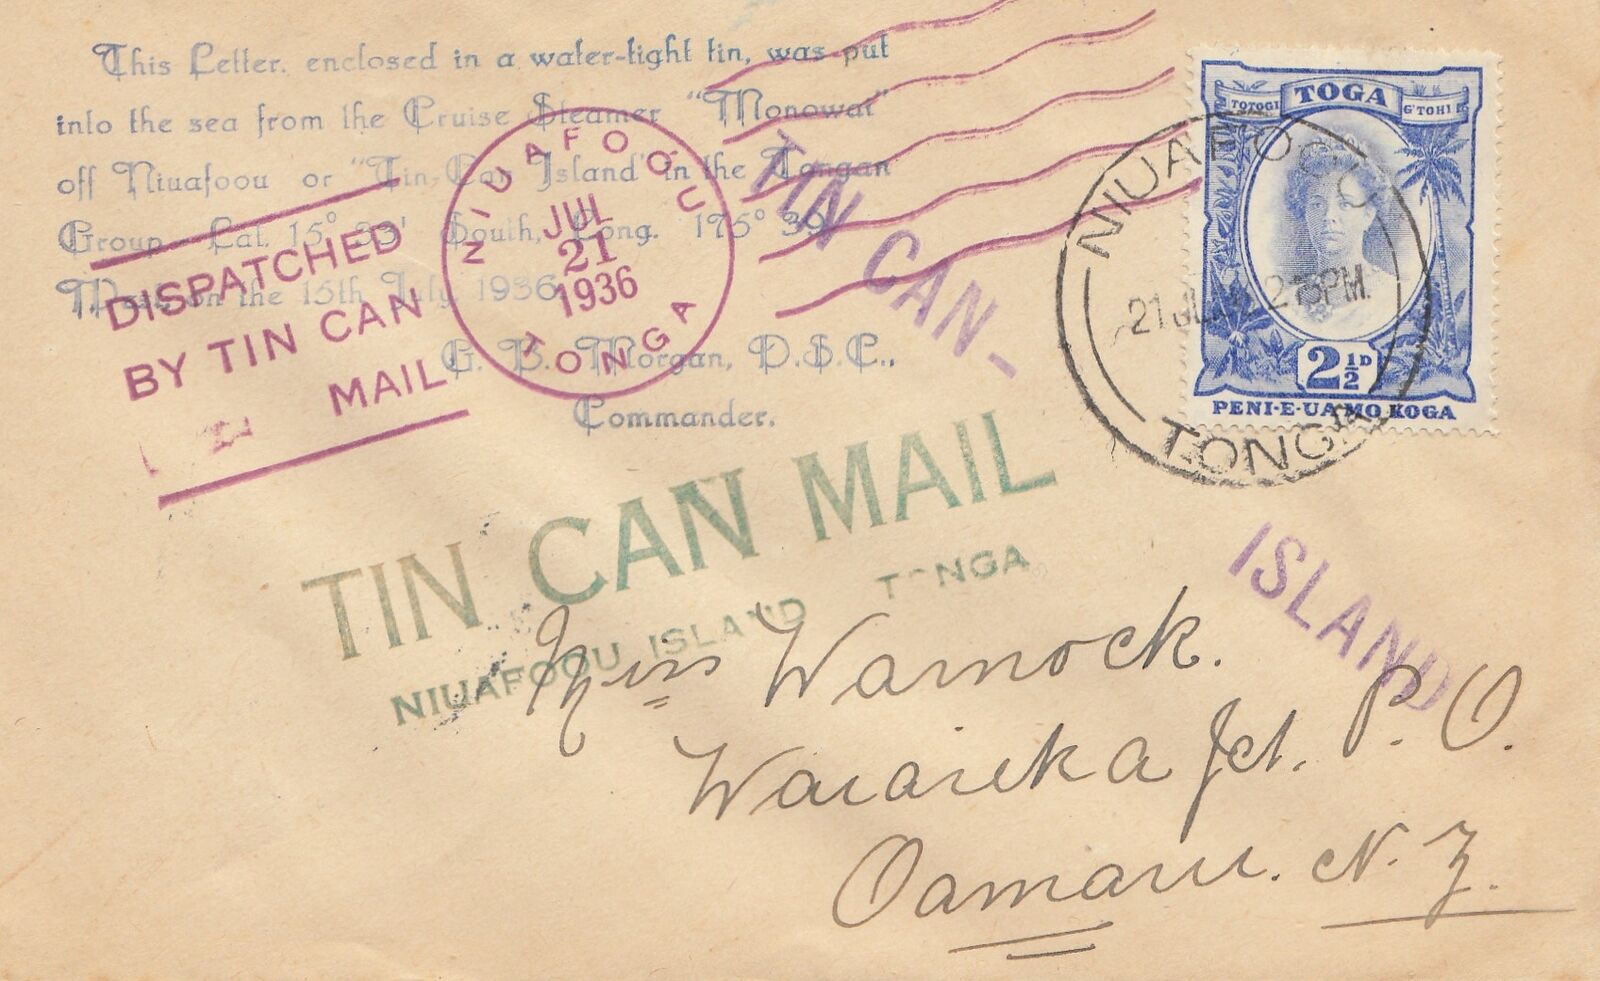 This Letter, enclosed in a water-tight tin, was put
into the sea from the Cruise Steamer "Monowai"
off Niuafoou or "Tin Can Island" in the Tongan
Group Lat. 15° 33' South, Long. 175° 39'
on the 15th July, 1936
G. B. Morgan, D.S.C.,
Commander.
DISPATCHED
BY TIN CAN
MAIL
NIUAFOOU
JUL
21
1936
TONGA
TIN CAN-
ISLAND
TOGA
TOTOGI
G'TOHI
2½D
PENI-E-UA MO KOGA
NIUAFOOU
21 JUL
PM.
TONGA
TIN CAN MAIL
NIUAFOOU ISLAND TONGA
Miss Warnock.
Waiareka Jct. P.O.
Oamaru. N.Z.